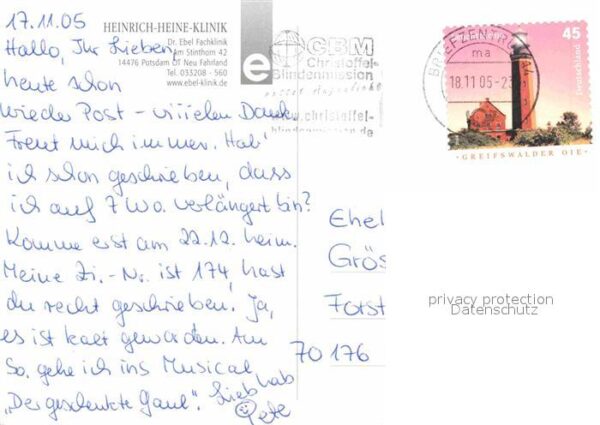 17.11.05
HEINRICH-HEINE-KLINIK
Dr. Ebel Fachklinik
Am Stinthorn 42
14476 Potsdam OT Neu Fahrland
Tel. 033208 - 560
www.ebel-klinik.de
e
Hallo, Ihr Lieben,
heute schon
wieder Post - viiielen Dank.
Freut mich immer. Hab'
ich schon geschrieben, dass
ich auf 7 Wo. verlängert bin?
Komme erst am 22.12. heim.
Meine Zi.-Nr. ist 174, hast
du recht geschrieben. Ja,
es ist kalt geworden. Am
So. gehe ich ins Musical
„Der geschenkte Gaul".
Lieb hab
CBM
Christoffel-
Blindenmission
rettet Augenlicht
www.christoffel-
blindenmission.de
BRIEFZENTRUM
ma
18.11.05-2
45
Deutschland
GREIFSWALDER OIE
Ebel
Grös
Forst
70176
privacy protection
Datenschutz